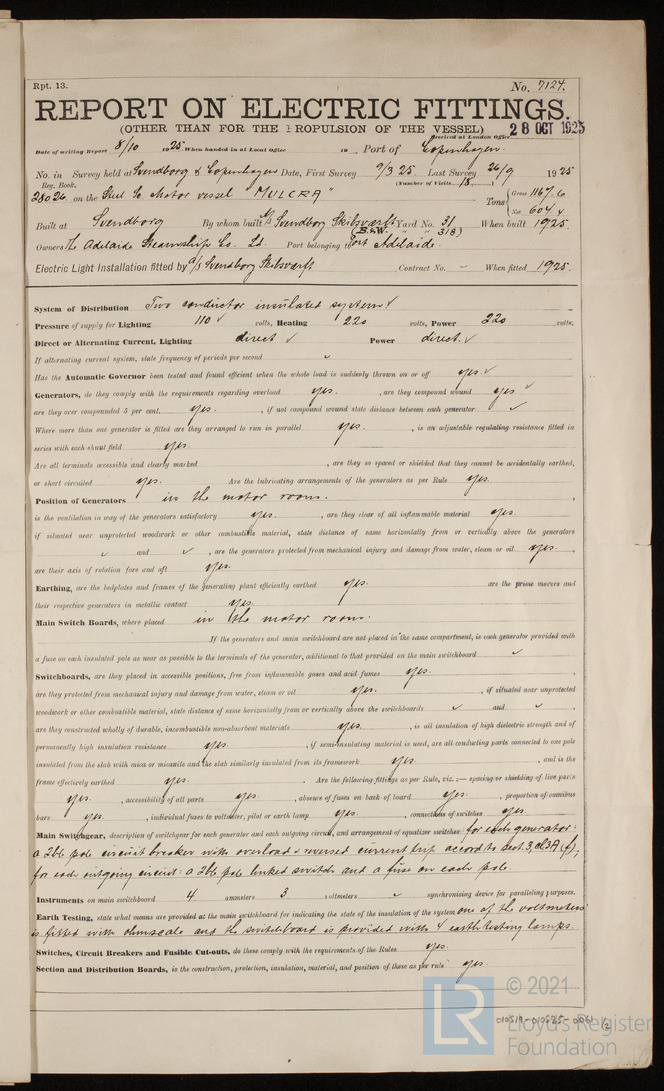 Rpt. 13.
No. 7124.
REPORT ON ELECTRIC FITTINGS.
(OTHER THAN FOR THE PROPULSION OF THE VESSEL)
Received at London Office 28 OCT 1925
Date of writing Report 8/10 1925 When handed in at Local Office 19 Port of Copenhagen.
No. in Survey held at Svendborg & Copenhagen Date, First Survey 9/3 25 Last Survey 26/9 1925
Reg. Book. (Number of Visits 18)
28026 on the Steel Sc Motor vessel "MULCRA" Tons { Gross 1167.6
Net 604.4
Built at Svendborg By whom built A/S Svendborg Skibsværft Yard No. 31 When built 1925.
(B.&W. " " 318)
Owners The Adelaide Steamship Co. Ld. Port belonging to Port Adelaide.
Electric Light Installation fitted by A/S Svendborg Skibsværft Contract No. - When fitted 1925.
System of Distribution Two conductor insulated system ✓
Pressure of supply for Lighting 110 ✓ volts, Heating 220 volts, Power 220 volts.
Direct or Alternating Current, Lighting direct ✓ Power direct. ✓
If alternating current system, state frequency of periods per second ✓
Has the Automatic Governor been tested and found efficient when the whole load is suddenly thrown on or off yes. ✓
Generators, do they comply with the requirements regarding overload yes. , are they compound wound yes ✓
are they over compounded 5 per cent. yes. , if not compound wound state distance between each generator ✓
Where more than one generator is fitted are they arranged to run in parallel yes. , is an adjustable regulating resistance fitted in
series with each shunt field yes.
Are all terminals accessible and clearly marked , are they so spaced or shielded that they cannot be accidentally earthed,
or short circuited yes. Are the lubricating arrangements of the generators as per Rule yes.
Position of Generators in the motor room.
is the ventilation in way of the generators satisfactory yes. , are they clear of all inflammable material yes.
if situated near unprotected woodwork or other combustible material, state distance of same horizontally from or vertically above the generators
✓ and ✓ , are the generators protected from mechanical injury and damage from water, steam or oil yes.
are their axis of rotation fore and aft yes.
Earthing, are the bedplates and frames of the generating plant efficiently earthed yes. are the prime movers and
their respective generators in metallic contact yes.
Main Switch Boards, where placed in the motor room.
If the generators and main switchboard are not placed in the same compartment, is each generator provided with
a fuse on each insulated pole as near as possible to the terminals of the generator, additional to that provided on the main switchboard ✓
Switchboards, are they placed in accessible positions, free from inflammable gases and acid fumes yes.
are they protected from mechanical injury and damage from water, steam or oil yes. , if situated near unprotected
woodwork or other combustible material, state distance of same horizontally from or vertically above the switchboards ✓ and ✓ ,
are they constructed wholly of durable, incombustible non-absorbent materials yes. , is all insulation of high dielectric strength and of
permanently high insulation resistance yes. , if semi-insulating material is used, are all conducting parts connected to one pole
insulated from the slab with mica or micanite and the slab similarly insulated from its framework yes. , and is the
frame effectively earthed yes. . Are the following fittings as per Rule, viz.:— spacing or shielding of live parts
yes. , accessibility of all parts yes. , absence of fuses on back of board yes. , proportion of omnibus
bars yes. , individual fuses to voltmeter, pilot or earth lamp yes. , connections of switches yes.
Main Switchgear, description of switchgear for each generator and each outgoing circuit, and arrangement of equalizer switches for each generator:
a dbl pole circuit breaker with overload & reversed current trip accord to Sect. 3, cl 3A (f);
for each outgoing circuit: a dbl pole linked switch and a fuse on each pole.
Instruments on main switchboard 4 ammeters 3 voltmeters ✓ synchronising device for paralleling purposes.
Earth Testing, state what means are provided at the main switchboard for indicating the state of the insulation of the system one of the voltmeters
is fitted with ohmscale and the switchboard is provided with 4 earth testing lamps.
Switches, Circuit Breakers and Fusible Cut-outs, do these comply with the requirements of the Rules yes.
Section and Distribution Boards, is the construction, protection, insulation, material, and position of these as per rule yes.
LR
© 2021
Lloyd's Register
Foundation
010519-010525-0061 1/2